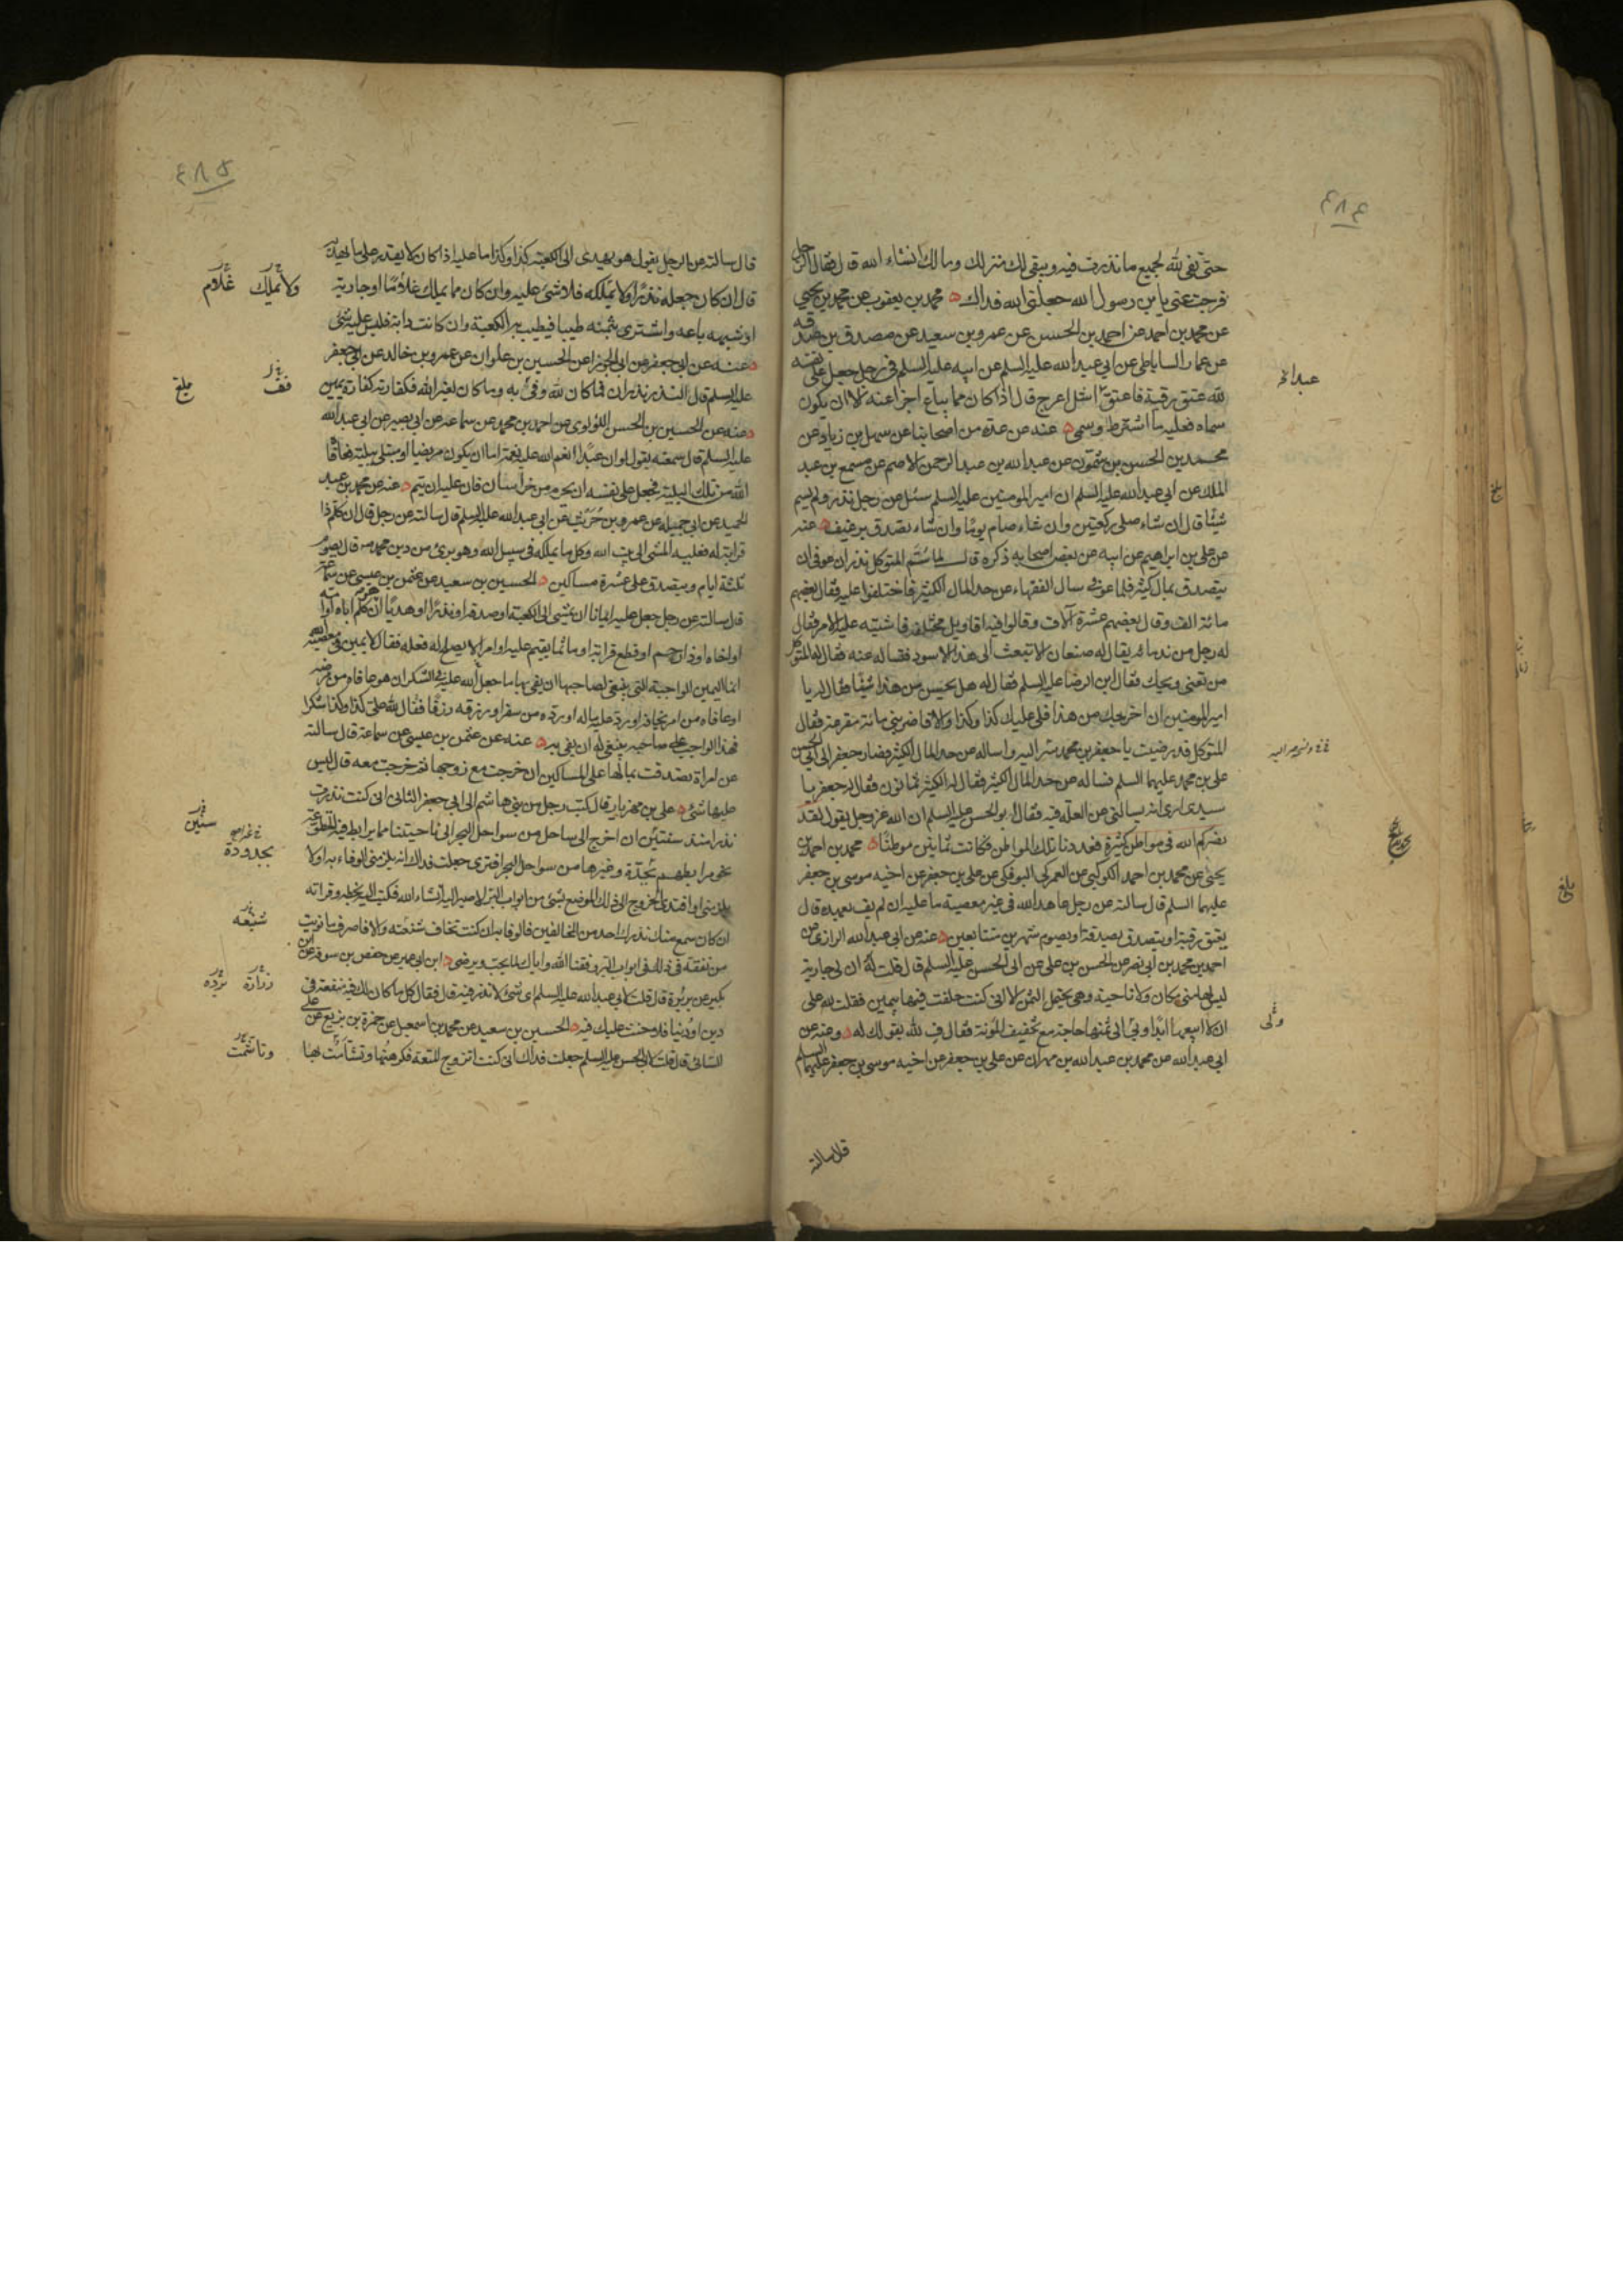 ٤٨٤
حتى تفى لله بجميع ما نذرت فيه ويبقى لك منزلك ومالك انشاء الله قال فقال الرجل
فرجت عنى يابن رسول الله جعلنى الله فداك محمد بن يعقوب عن محمد بن يحيى
عن محمد بن احمد عن احمد بن الحسن عن عمرو بن سعيد عن مصدق بن صدقه
عن عمار الساباطى عن ابى عبد الله عليه السلم عن ابيه عليه السلم فى رجل جعل على نفسه
لله عتق رقبة فاعتق اشل اعرج قال اذا كان مما يباع اجزا عنه الا ان يكون
سماه فعليه ما اشترط وسمى عنه عن عدة من اصحابنا عن سهل بن زياد عن
محمد بن الحسن بن شمون عن عبد الله بن عبد الرحمن الاصم عن مسمع بن عبد
الملك عن ابى عبد الله عليه السلم ان امير المومنين عليه السلم سئل عن رجل نذر ولم يسم
شيئا قال ان شاء صلى ركعتين وان شاء صام يوما وان شاء تصدق برغيف عنه
عن على بن ابراهيم عن ابيه عن بعض اصحابه ذكره قال لما سم المتوكل نذر ان عوفى ان
يتصدق بمال كثير فلما عوفى سال الفقهاء عن حد المال الكثير فاختلفوا عليه فقال بعضهم
مائة الف وقال بعضهم عشرة آلاف وقالوا فيه اقاويل مختلفة فاشتبه عليه الامر فقال
له رجل من ندمائه يقال له صنعان الا تبعث الى هذا الاسود فتساله عنه فقال له المتوكل
من تعنى ويحك فقال ابن الرضا عليه السلم فقال له هل يحسن من هذا شيئا فقال له يا
امير المومنين ان اخرجك من هذا فلى عليك كذا وكذا والا فاضربنى مائة مقرعة فقال
المتوكل قد رضيت يا جعفر بن محمد سر اليه واساله عن حد المال الكثير فصار جعفر الى ابى الحسن
على بن محمد عليهما السلم فساله عن حد المال الكثير فقال له الكثير ثمانون فقال له جعفر يا
سيدى ارى انه يسالنى عن العلة فيه فقال ابو الحسن عليه السلم ان الله عز وجل يقول لقد
نصركم الله فى مواطن كثيرة فعددنا تلك المواطن فكانت ثمانين موطنا محمد بن احمد بن
يحيى عن محمد بن احمد الكوكبى عن العمركى البوفكى عن على بن جعفر عن اخيه موسى بن جعفر
عليهما السلم قال سالته عن رجل عاهد الله فى غير معصية ما عليه ان لم يف بعهده قال
يعتق رقبة او يتصدق بصدقة او يصوم شهرين متتابعين عنه عن ابى عبد الله الرازى عن
احمد بن محمد بن ابى نصر عن الحسن بن على عن ابى الحسن عليه السلم قال قلت له ان لى جارية
ليس لها منى مكان ولا ناحية وهى تحتمل الثمن الا انى كنت حلفت فيها بيمين فقلت لله على
ان لا ابيعها ابدا وبى الى ثمنها حاجة مع تخفيف المؤنة فقال ف لله بقولك له وعنه عن
ابى عبد الله عن محمد بن عبد الله بن مهران عن على بن جعفر عن اخيه موسى بن جعفر عليهما السلم
قال سالته
ولى
٤٨٥
قال سالته عن الرجل يقول هو يهدى الى الكعبة كذا وكذا ما عليه اذا كان لا يقدر على ما يهديه
قال ان كان جعله نذرا ولا يملكه فلا شىء عليه وان كان مما يملك غلاما او جارية
او شبهه باعه واشترى بثمنه طيبا فيطيب به الكعبة وان كانت دابة فليس عليه شىء
عنه عن ابى جعفر عن ابى الجوزا عن الحسين بن علوان عن عمرو بن خالد عن ابى جعفر
عليه السلم قال النذر نذران فما كان لله وفى به وما كان لغير الله فكفارته كفارة يمين
عنه عن الحسين بن الحسن اللؤلوى عن احمد بن محمد عن سماعة عن ابى بصير عن ابى عبد الله
عليه السلم قال سمعته يقول لو ان عبدا انعم الله عليه نعمة اما ان يكون مريضا او مبتلى ببلية فعافا
الله من تلك البلية فجعل على نفسه ان يحرم من خراسان فان عليه ان يتم عنه عن محمد بن عبد
الحميد عن ابى جميلة عن عمرو بن حريث عن ابى عبد الله عليه السلم قال سالته عن رجل قال ان كلم ذا
قرابة له فعليه المشى الى بيت الله وكل ما يملكه فى سبيل الله وهو برىء من دين محمد قال يصوم
ثلثة ايام ويتصدق على عشرة مساكين الحسين بن سعيد عن عثمن بن عيسى عن سماعة
قال سالته عن رجل جعل عليه ايمانا ان يمشى الى الكعبة او صدقة او نذرا او هديا ان كلم اباه او امه
او اخاه او ذا رحم او قطع قرابة او ماثما يقيم عليه او امر لا يصلح له فعله فقال لا يمين فى معصية الله
انما اليمين الواجبة التى ينبغى لصاحبها ان يفى بها ما جعل لله عليه فى الشكر ان هو عافاه من مرضه
او عافاه من امر يخافه او رد عليه ماله او رده من سفر او رزقه رزقا فقال لله على كذا وكذا شكرا
فهذا الواجب على صاحبه ينبغى له ان يفى به عنه عن عثمن بن عيسى عن سماعة قال سالته
عن امراة تصدقت بمالها على المساكين ان خرجت مع زوجها ثم خرجت معه قال ليس
عليها شىء على بن مهزيار قال كتب رجل من بنى هاشم الى ابى جعفر الثانى انى كنت نذرت
نذرا منذ سنتين ان اخرج الى ساحل من سواحل البحر الى ناحيتنا مما يرابط فيه المتطوعة
نحو مرابطهم بجدة وغيرها من سواحل البحر افترى جعلت فداك انه يلزمنى الوفاء به اولا
يلزمنى او افتدى الخروج الى ذلك الموضع بشىء من ابواب البر لاصير اليه انشاء الله فكتب اليه بخطه وقراته
ان كان سمع منك نذرك احد من المخالفين فالوفا به ان كنت تخاف شنعته والا فاصرف ما نويت
من نفقة فى ذلك فى ابواب البر وفقنا الله واياك لما يحب ويرضى ابن ابى عمير عن حفص بن سوقة عن ابن
بكير عن بريرة قال قلت لابى عبد الله عليه السلم اى شىء لا نذر فيه قال فقال كل ما كان لك فيه منفعة فى
دين او دنيا فلا حنث عليك فيه الحسين بن سعيد عن محمد بن اسمعيل عن حمزة بن بزيع عن على
السائى قال قلت لابى الحسن عليه السلم جعلت فداك انى كنت اتزوج المتعة فكرهتها وتشأمت بها
ولا يملك
غلام
بلغ
سنين
بجدودة
شنعه
زرارة